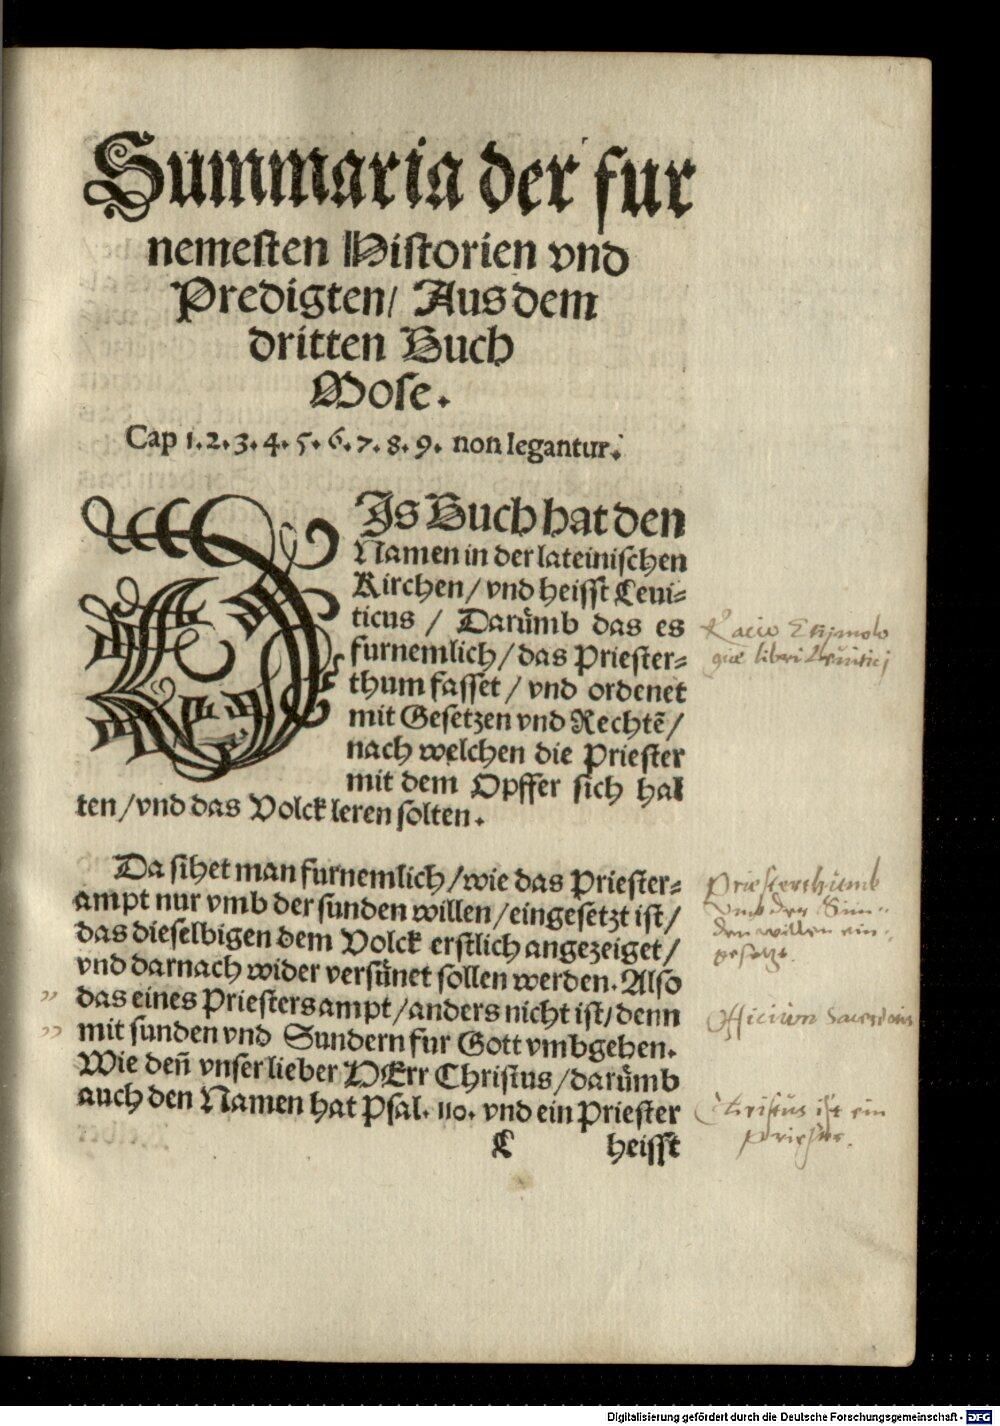 Summaria der fur
nemeſten Hiſtorien vnd
Predigten/ Aus dem
dritten Buch
Moſe.
Cap 1.2.3.4.5.6.7.8.9. non legantur.
DJs Buch hat den
Namen in der lateiniſchen
Kirchen/ vnd heiſſt Leui⸗
ticus / Darümb das es
furnemlich/ das Prieſter⸗
thum faſſet / vnd ordenet
mit Geſetzen vnd Rechtē/
nach welchen die Prieſter
mit dem Opffer ſich hal
ten/ vnd das Volck leren ſolten.
Racio Etÿmolo
giæ libri Leuiticj
Da ſihet man furnemlich/ wie das Prieſter⸗
ampt nur vmb der ſunden willen/ eingeſetzt iſt/
das dieſelbigen dem Volck erſtlich angezeiget/
vnd darnach wider verſünet ſollen werden. Alſo
das eines Prieſters ampt/ anders nicht iſt/ denn
mit ſunden vnd Sundern fur Gott vmbgehen.
Wie deñ vnſer lieber HErr Chriſtus/ darümb
auch den Namen hat Pſal. 110. vnd ein Prieſter
C heiſſt
Prieſterthumb
vmb der Sün⸗
den willen ein⸗
geſetzt.
Officium Sacerdotis
Chriſtus iſt ein
Prieſter.
Digitalisierung gefördert durch die Deutsche Forschungsgemeinschaft - DFG